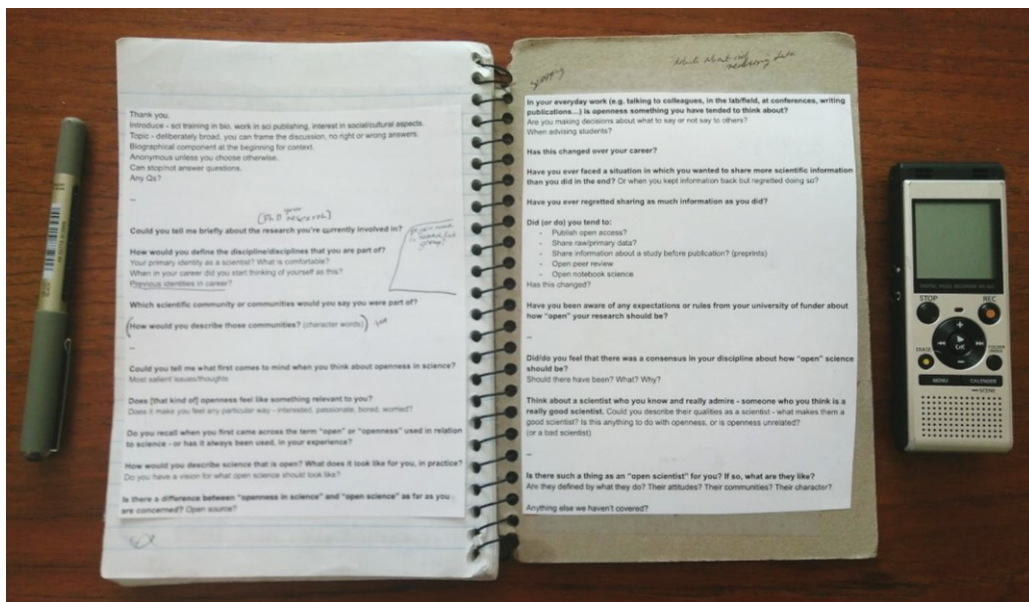 Thank you,
Introduce - sci training in bio, work in sci publishing, interest in social/cultural aspects.
Topic - deliberately broad, you can frame the discussion, no right or wrong answers.
Biographical component at the beginning for context.
Anonymous unless you choose otherwise.
Can stop/not answer questions.
Any Qs?
--
[PhD research]
Could you tell me briefly about the research you're currently involved in?
How would you define the discipline/disciplines that you are part of?
Your primary identity as a scientist? What is comfortable?
When in your career did you start thinking of yourself as this?
Previous identities in career?
Which scientific community or communities would you say you were part of?
(How would you describe those communities? (character words))
--
Could you tell me what first comes to mind when you think about openness in science?
Most salient issues/thoughts
Does [that kind of] openness feel like something relevant to you?
Does it make you feel any particular way - interested, passionate, bored, worried?
Do you recall when you first came across the term "open" or "openness" used in relation
to science - or has it always been used, in your experience?
How would you describe science that is open? What does it look like for you, in practice?
Do you have a vision for what open science should look like?
Is there a difference between "openness in science" and "open science" as far as you
are concerned? Open source?
data
In your everyday work (e.g. talking to colleagues, in the lab/field, at conferences, writing
publications...) is openness something you have tended to think about?
Are you making decisions about what to say or not say to others?
When advising students?
Has this changed over your career?
Have you ever faced a situation in which you wanted to share more scientific information
than you did in the end? Or when you kept information back but regretted doing so?
Have you ever regretted sharing as much information as you did?
Did (or do) you tend to:
- Publish open access?
- Share raw/primary data?
- Share information about a study before publication? (preprints)
- Open peer review
- Open notebook science
Has this changed?
Have you been aware of any expectations or rules from your university of funder about
how "open" your research should be?
--
Did/do you feel that there was a consensus in your discipline about how "open" science
should be?
Should there have been? What? Why?
Think about a scientist who you know and really admire - someone who you think is a
really good scientist. Could you describe their qualities as a scientist - what makes them a
good scientist? Is this anything to do with openness, or is openness unrelated?
(or a bad scientist)
--
Is there such a thing as an "open scientist" for you? If so, what are they like?
Are they defined by what they do? Their attitudes? Their communities? Their character?
Anything else we haven't covered?
STOP
REC
OK
ERASE
MENU
CALENDAR
SCENE